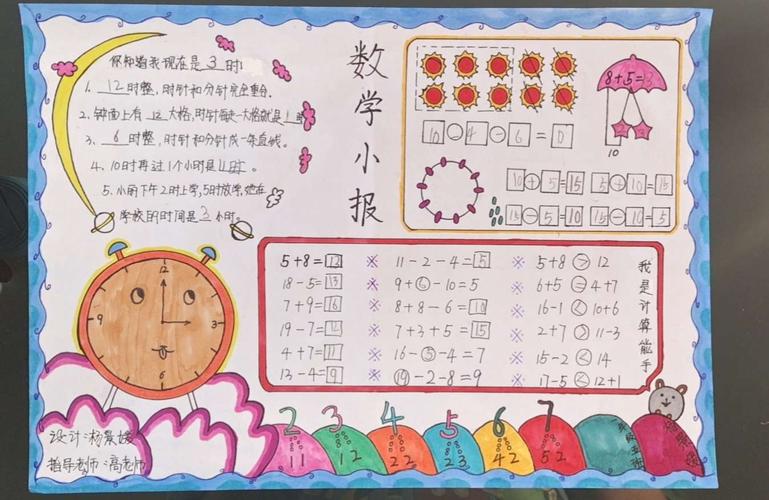 数学小报
你知道我现在是 3 时!
1. 12 时整,时针和分针完全重合。
2. 钟面上有 12 大格,时针每走一大格就是 1 时
3. 6 时整,时针和分针成一条直线。
4. 10时再过1个小时是11时。
5. 小丽下午2时上学,5时放学,她在
学校的时间是 3 小时。
10 - 4 - 6 = 0
8+5=13
10
10 + 5 = 15 5 + 10 = 15
15 - 5 = 10 15 - 10 = 5
12
9 3
6
5+8=13 ※ 11-2-4=5 ※ 5+8 > 12
18-5=13 ※ 9+6-10=5 ※ 6+5 = 4+7
7+9=16 ※ 8+8-6=10 ※ 16-1 < 10+6
19-7=12 ※ 7+3+5=15 ※ 2+7 > 11-3
4+7=11 ※ 16-5-4=7 ※ 15-2 < 14
13-4=9 ※ 19-2-8=9 ※ 17-5 < 12+1
我是计算能手
2 3 4 5 6 7
11 12 22 23 42 52
设计:杨
指导老师:高老师